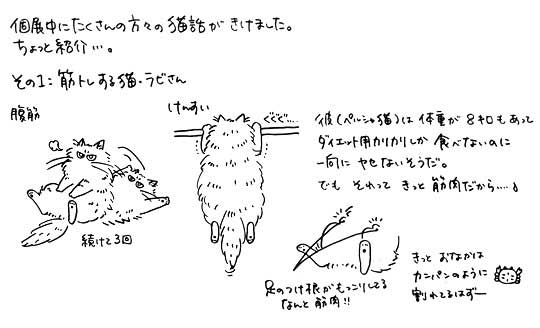 個展中にたくさんの方々の猫話がきけました。
ちょっと紹介…。
その1：筋トレする猫・ラビさん
腹筋
続けて3回
けんすい
ぐぐぐ…
彼(ペルシャ猫)は体重が8キロもあって
ダイエット用カリカリしか食べないのに
一向にやせないそうだ。
でもそれってきっと筋肉だから…。
足のつけ根がもっこりしてる
なんと筋肉!!
きっとおなかは
カンパンのように
割れてるはずー